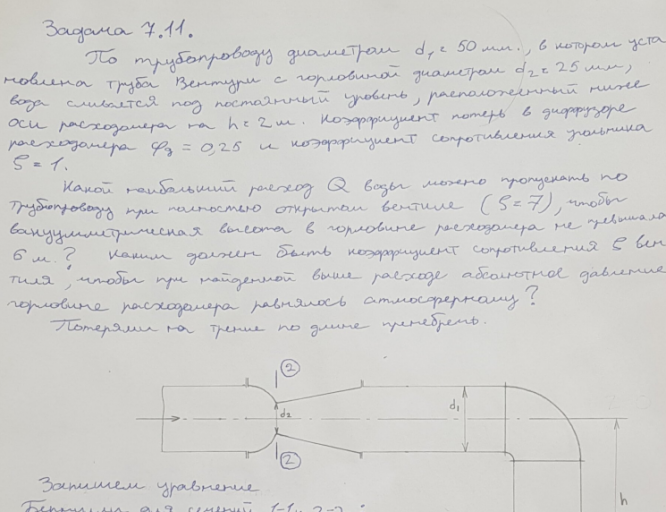 Задача 7.11.
По трубопроводу диаметром d₁ = 50 мм., в котором уста
новлена труба Вентури с горловиной диаметром d₂ = 25 мм,
вода сливается под постоянный уровень, расположенный ниже
оси расходомера на h = 2 м. Коэффициент потерь в диффузоре
расходомера φд = 0,25 и коэффициент сопротивления угольника
ζ = 1.
Какой наибольший расход Q воды можно пропускать по
трубопроводу при полностью открытом вентиле (ζ = 7), чтобы
вакуумметрическая высота в горловине расходомера не превышала
6 м.? Каким должен быть коэффициент сопротивления ζ вен
тиля, чтобы при найденной выше расходе абсолютное давление
горловине расходомера равнялось атмосферному?
Потерями на трение по длине пренебречь.
2
d₂
d₁
2
h
Запишем уравнение
Бернулли для сечений 1-1 и 2-2 :